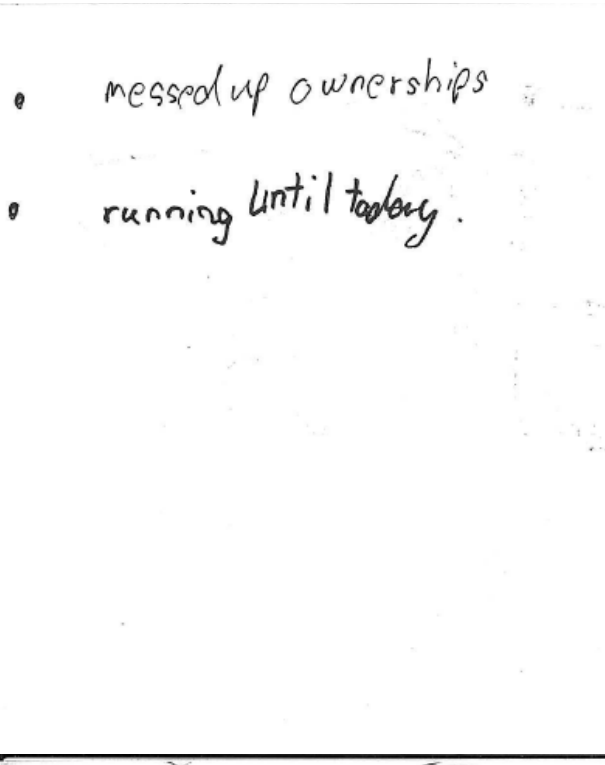 • messed up ownerships
• running until today.